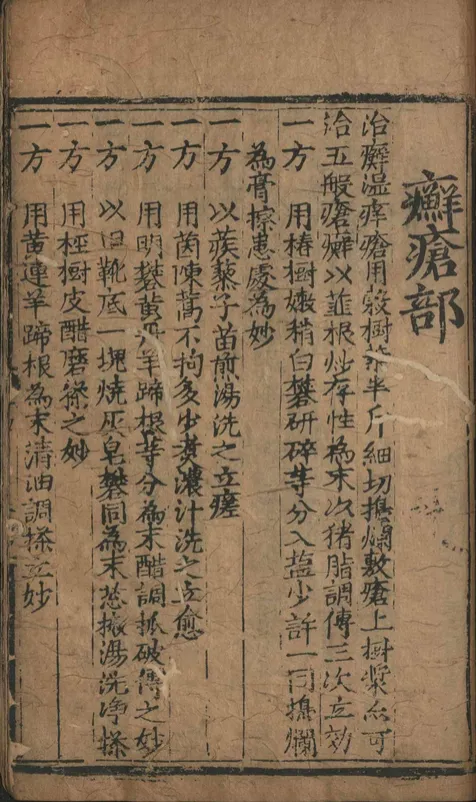 癬瘡部
治癬湿痒瘡用穀樹葉半斤細切搗爛敷瘡上樹漿亦可
治五般瘡癬以韮根炒存性為末以猪脂調傅三次立効
一方　用椿樹嫩稍白礬研碎等分入塩少許一同搗爛
為膏擦患處為妙
一方　以蒺藜子苗煎湯洗之立瘥
一方　用茵陳蒿不拘多少煮濃汁洗之立愈
一方　用明礬黄丹羊蹄根等分為末醋調抓破傅之妙
一方　以旧靴底一塊燒灰皂礬同為末葱椒湯洗净搽
一方　用樹皮醋磨搽之妙
一方　用黄連羊蹄根為末清油調搽立妙